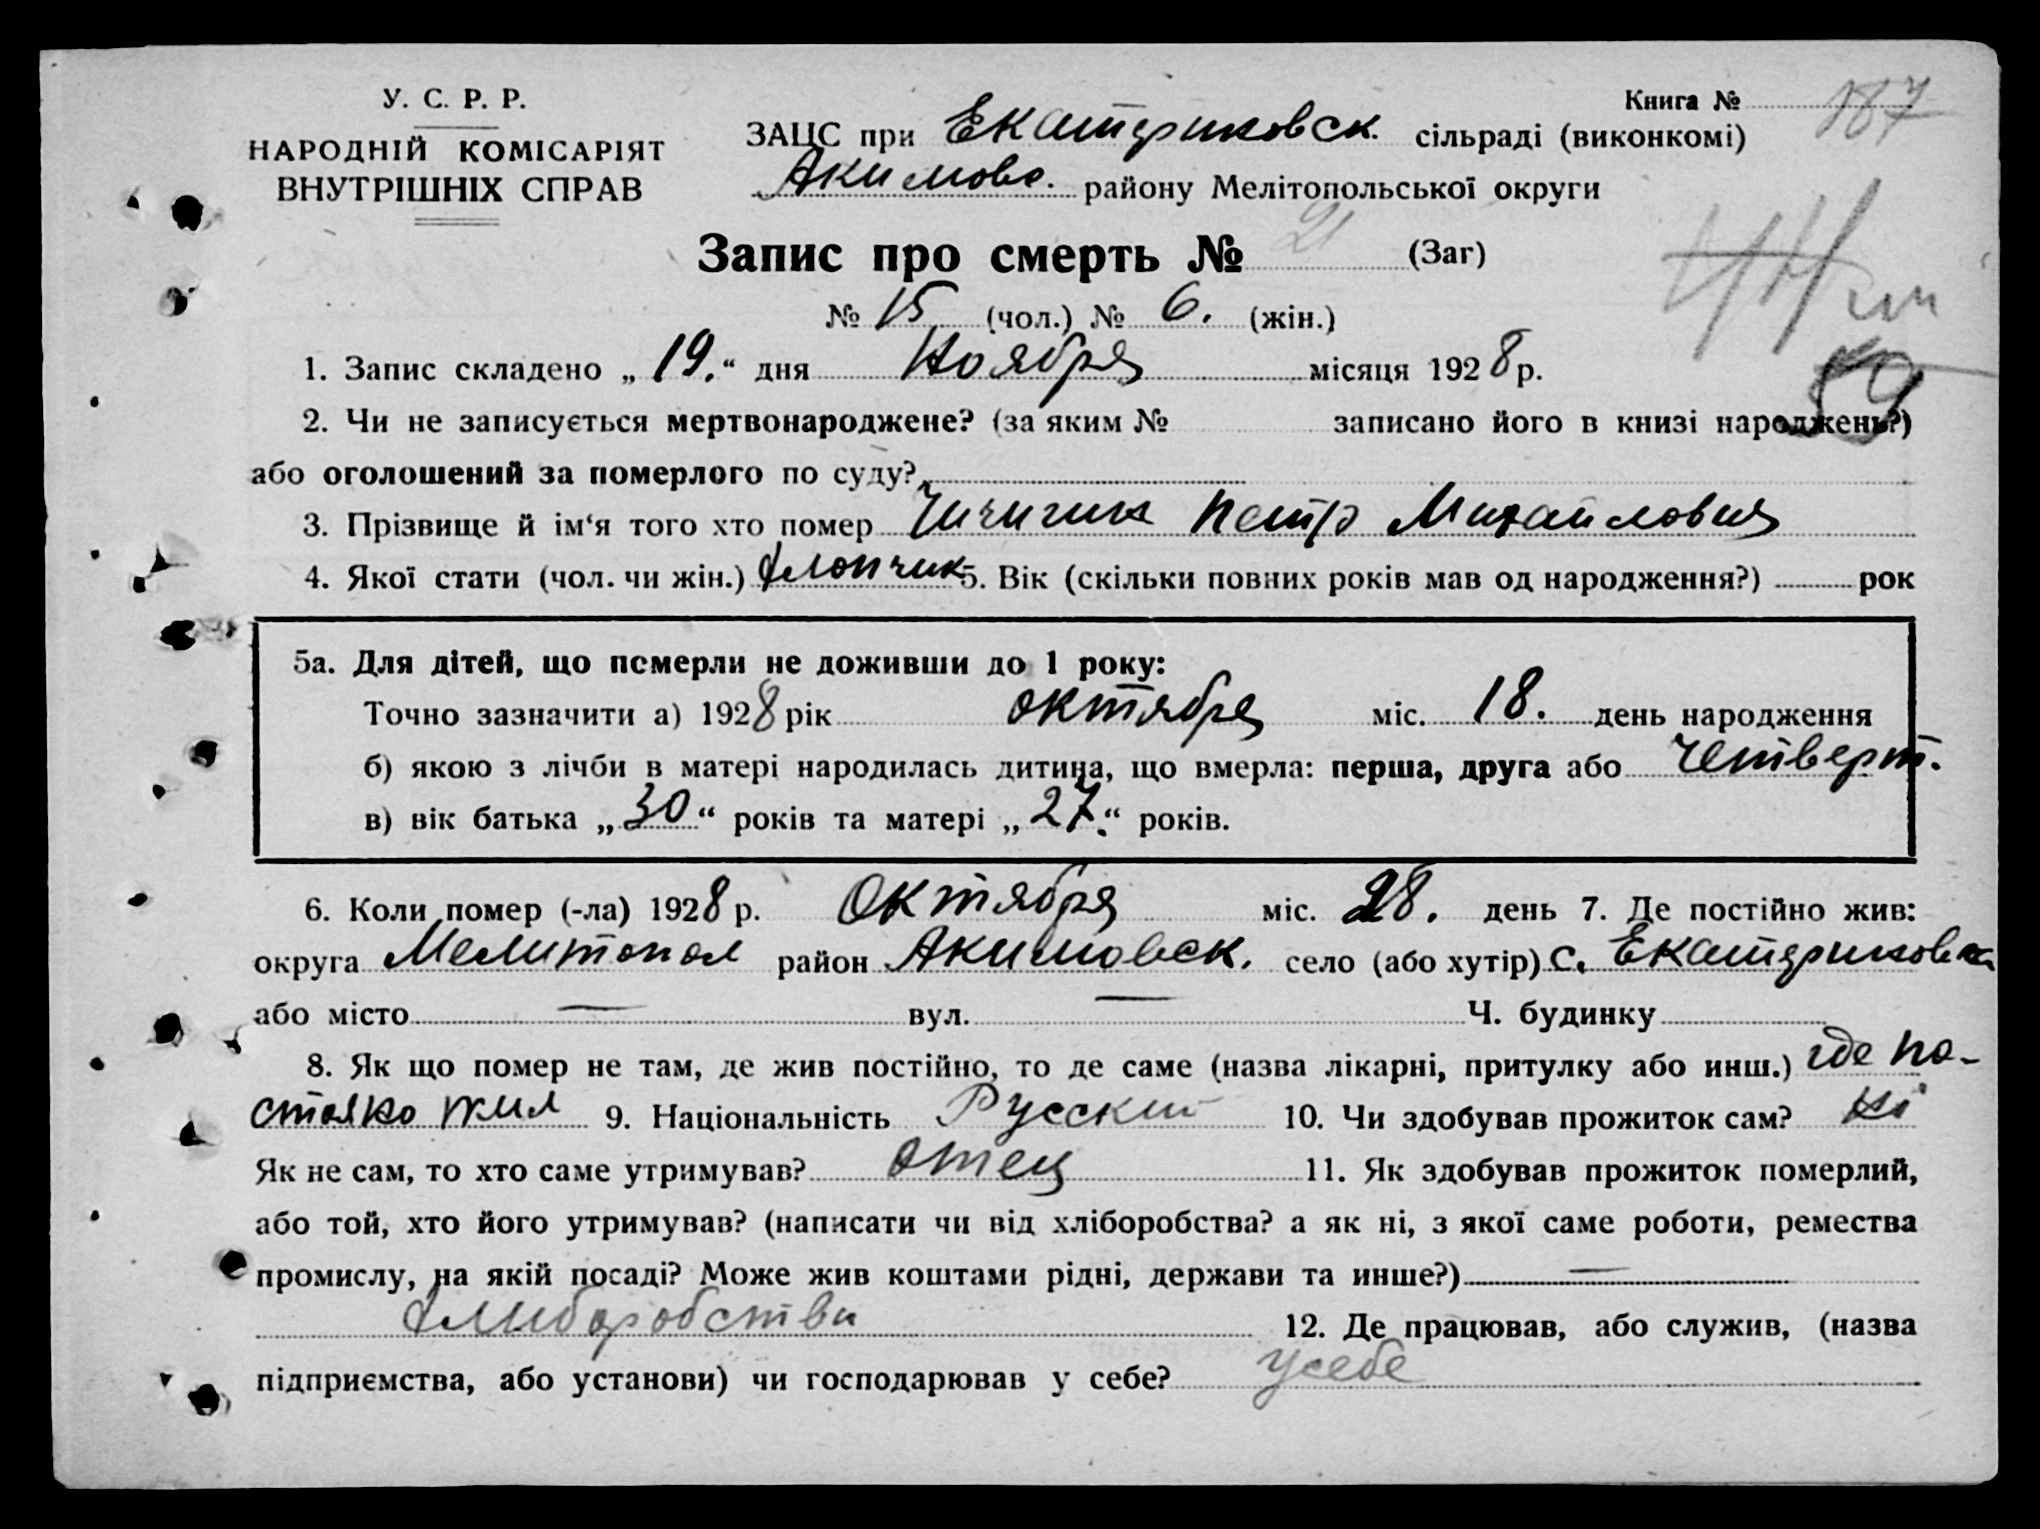 У. С. Р. Р.
НАРОДНІЙ КОМІСАРІЯТ
ВНУТРІШНІХ СПРАВ
Книга №
ЗАЦС при Екатериновск. сільраді (виконкомі)
Акимовс. району Мелітопольської округи
Запис про смерть № 21 (Заг)
№ 15 (чол.) № 6. (жін.)
1. Запис складено „19.“ дня Ноября місяця 1928 р.
59
2. Чи не записується мертвонароджене? (за яким № записано його в книзі народжень?)
або оголошений за померлого по суду?
3. Прізвище й ім‘я того хто помер Петр Михайлович
4. Якої стати (чол. чи жін.) Хлопчик 5. Вік (скільки повних років мав од народження?) рок
5а. Для дітей, що померли не доживши до 1 року:
Точно зазначити а) 1928 рік октября міс. 18. день народження
б) якою з лічби в матері народилась дитина, що вмерла: перша, друга або четверт.
в) вік батька „30“ років та матері „27.“ років.
6. Коли помер (-ла) 1928 р. Октября міс. 28. день 7. Де постійно жив:
округа Мелитопол район Акимовск. село (або хутір) с. Екатериновка
або місто — вул. — Ч. будинку
8. Як що помер не там, де жив постійно, то де саме (назва лікарні, притулку або инш.) где по-
стояно жил 9. Національність Русский 10. Чи здобував прожиток сам? Ні
Як не сам, то хто саме утримував? отец 11. Як здобував прожиток померлий,
або той, хто його утримував? (написати чи від хліборобства? а як ні, з якої саме роботи, ремества
промислу, на якій посаді? Може жив коштами рідні, держави та инше?) —
хлиборобства 12. Де працював, або служив, (назва
підприємства, або установи) чи господарював у себе? у себе